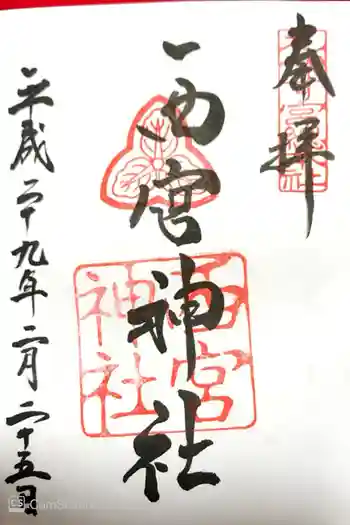 奉拝
西宮神社
西宮
神社
平成二十九年二月二十五日
CS CamScanner